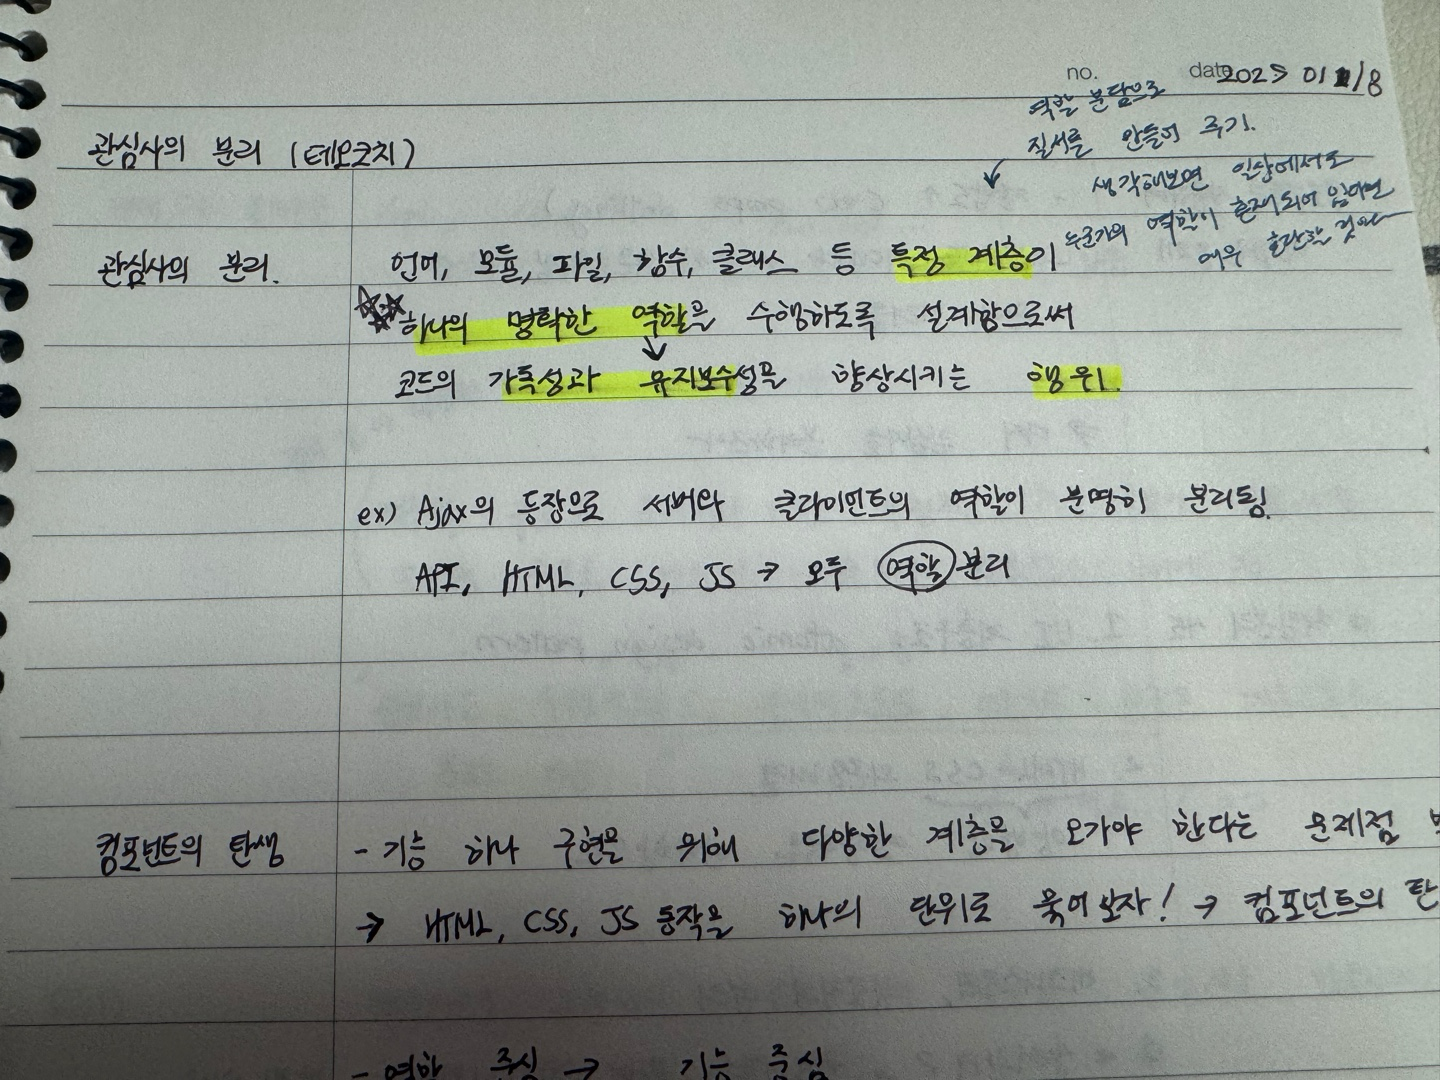 no. date 2025 01 /8
역할 분담으로
질서를 만들어 주기.
생각해보면 일상에서도
누군가의 역할이 혼재되어 있다면
매우 혼란할 것
관심사의 분리 (테오코치)
관심사의 분리.
언어, 모듈, 파일, 함수, 클래스 등 특정 계층이
하나의 명확한 역할을 수행하도록 설계함으로써
코드의 가독성과 유지보수성을 향상시키는 행위.
ex) Ajax의 등장으로 서버와 클라이언트의 역할이 분명히 분리됨.
API, HTML, CSS, JS → 모두 역할 분리
컴포넌트의 탄생
- 기능 하나 구현을 위해 다양한 계층을 오가야 한다는 문제점
→ HTML, CSS, JS 동작을 하나의 단위로 묶어보자! → 컴포넌트의 탄
- 역할 중심 → 기능 중심